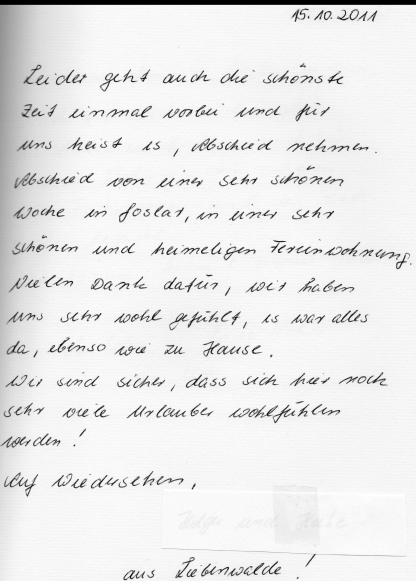 15.10.2011
Leider geht auch die schönste
Zeit einmal vorbei und für
uns heist es, Abschied nehmen.
Abschied von einer sehr schönen
Woche in Goslar, in einer sehr
schönen und heimeligen Ferienwohnung.
Vielen Dank dafür, wir haben
uns sehr wohl gefühlt, es war alles
da, ebenso wie zu Hause.
Wir sind sicher, dass sich hier noch
sehr viele Urlauber wohlfühlen
werden!
Auf Wiedersehen,
und
aus Liebenwalde!